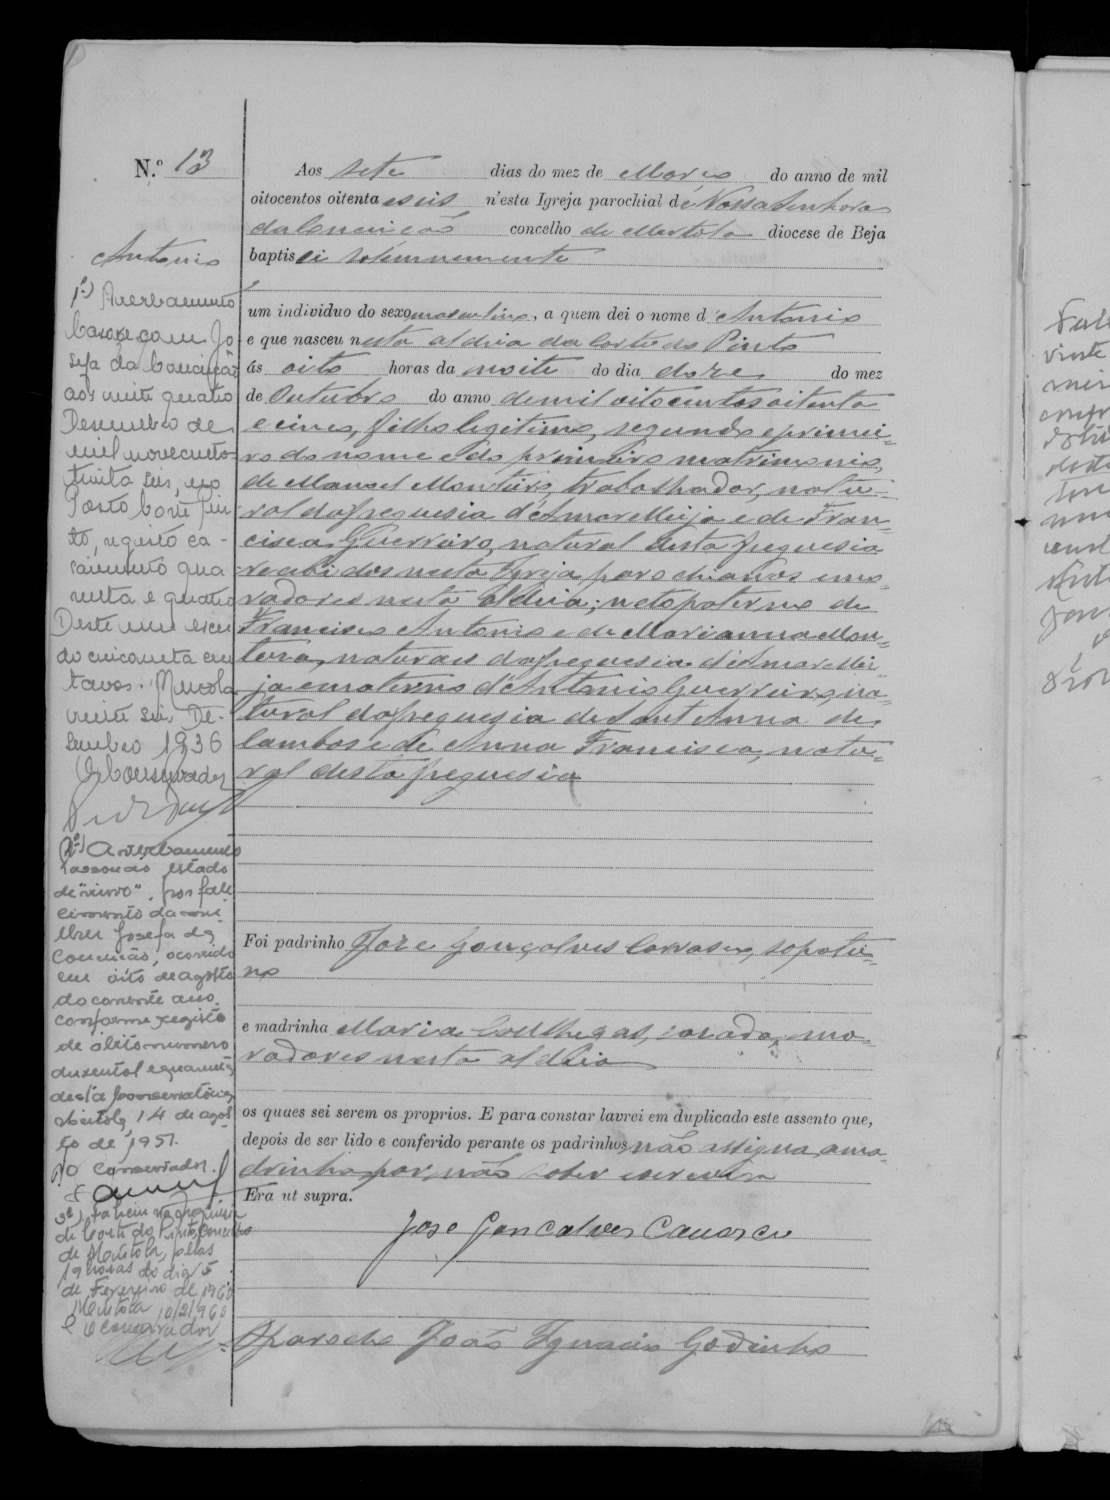 N.º 13
Antonio
Aos sete dias do mez de Março do anno de mil
oitocentos oitenta e seis n'esta Igreja parochial de Nossa Senhora
da Conceição concelho de Mertola diocese de Beja
baptisei solemnemente
um individuo do sexo masculino, a quem dei o nome d'Antonio
e que nasceu nesta aldeia da Corte do Pinto
ás oito horas da noite do dia doze do mez
de Outubro do anno de mil oitocentos oitenta
e cinco, filho legitimo, segundo e primei-
ro do nome e do primeiro matrimonio,
de Manoel Monteiro, trabalhador, natu-
ral da freguesia d'Amarelleija e de Fran-
cisca Guerreiro, natural desta freguesia
recebidos nesta Igreja parochianos e mo-
radores nesta aldeia; neto paterno de
Francisco Antonio e de Marianna Mon-
teira, naturaes da freguesia d'Amarellei-
ja e materno d'Antonio Guerreiro, na-
tural da freguesia de Sant'Anna de
Cambas e de Anna Francisca, natu-
ral desta freguesia
Foi padrinho José Gonçalves
e madrinha Maria casada, mo-
radores nesta aldeia
os quaes sei serem os proprios. E para constar lavrei em duplicado este assento que,
depois de ser lido e conferido perante os padrinhos, não assigna a ma-
drinha por não saber escrever
Era ut supra.
José Gonçalves
O parocho João Ignacio Godinho
1º) Averbamento
Casou com Jo-
sefa da Conceição
aos vinte quatro
Dezembro de
mil novecentos
trinta seis, no
Posto Corte Pin-
to, registo ca-
samento qua
renta e quatro
Deste ano
do cincoenta cen
tavos. Mertola
vinte seis De-
zembro 1936
O Conservador
(2º) Averbamento
Passou ao estado
de "viuvo", por fale
cimento da mu-
lher Josefa da
Conceição, ocorrido
em oito de agosto
do corrente ano.
conforme registo
de óbito numero
duzentos e quarenta
desta Conservatória
Mertola, 14 de agos-
to de 1951.
O Conservador.
3º) Faleceu na freguesia
de Corte do Pinto, Concelho
de Mertola, pelas
19 horas do dia 5
de Fevereiro de 1960
Mertola 10/2/1960
O Conservador